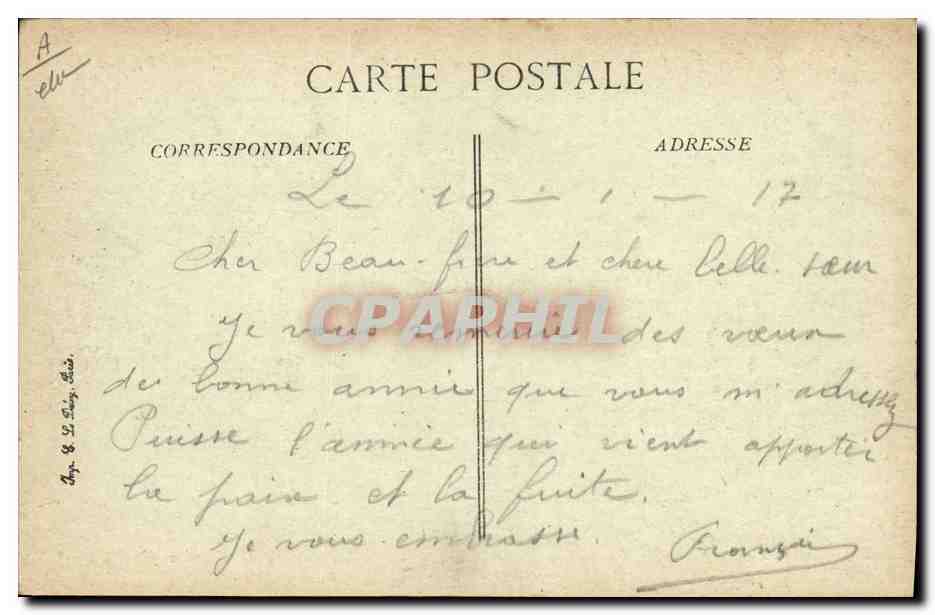 A
CARTE POSTALE
CORRESPONDANCE
ADRESSE
Le 10 - 1 - 17
Cher Beau-frère et chère belle-sœur
Je vous remercie des vœux
de bonne année que vous m'adressez
Puisse l'année qui vient apporter
la paix et la fuite.
Je vous embrasse.
François
CPAPHIL
Imp. E. Le Deley, Paris.